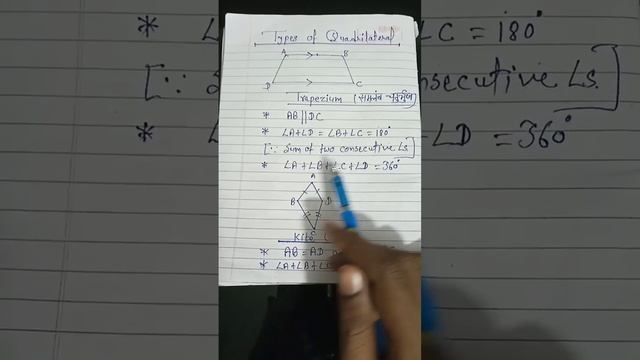 Types of Quadrilateral
A B
D C
Trapezium (समलंब चतुर्भुज)
* AB || DC
* ∠A+∠D = ∠B+∠C = 180°
[∵ Sum of two consecutive ∠s]
* ∠A + ∠B + ∠C + ∠D = 360°
A
B D
Kite
* AB = AD
* ∠A+∠B+∠